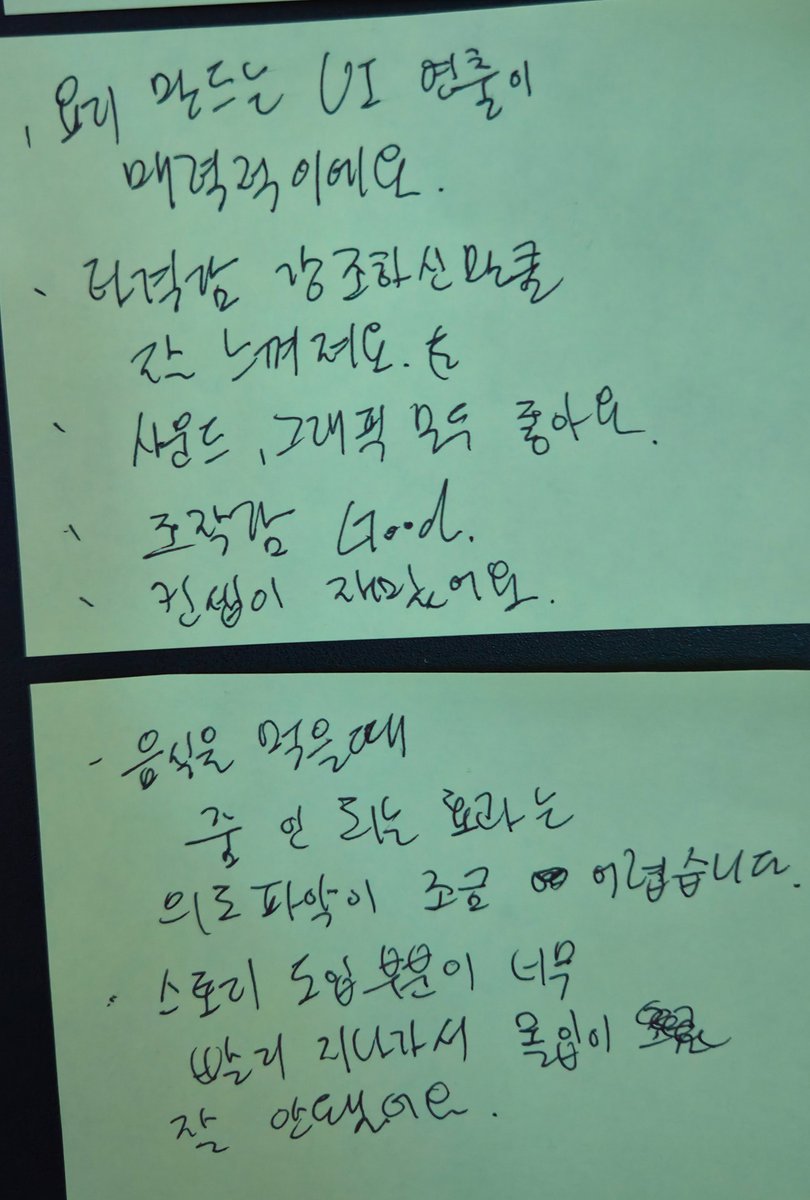 요리 만드는 UI 연출이
매력적이에요.
타격감 강조하신만큼
잘 느껴져요.
사운드, 그래픽 모두 좋아요.
조작감 Good.
컨셉이 재밌어요.
음식을 먹을때
줌 인 되는 효과는
의도파악이 조금 어렵습니다.
스토리 도입부분이 너무
빨리 지나가서 몰입이
잘 안됐어요.